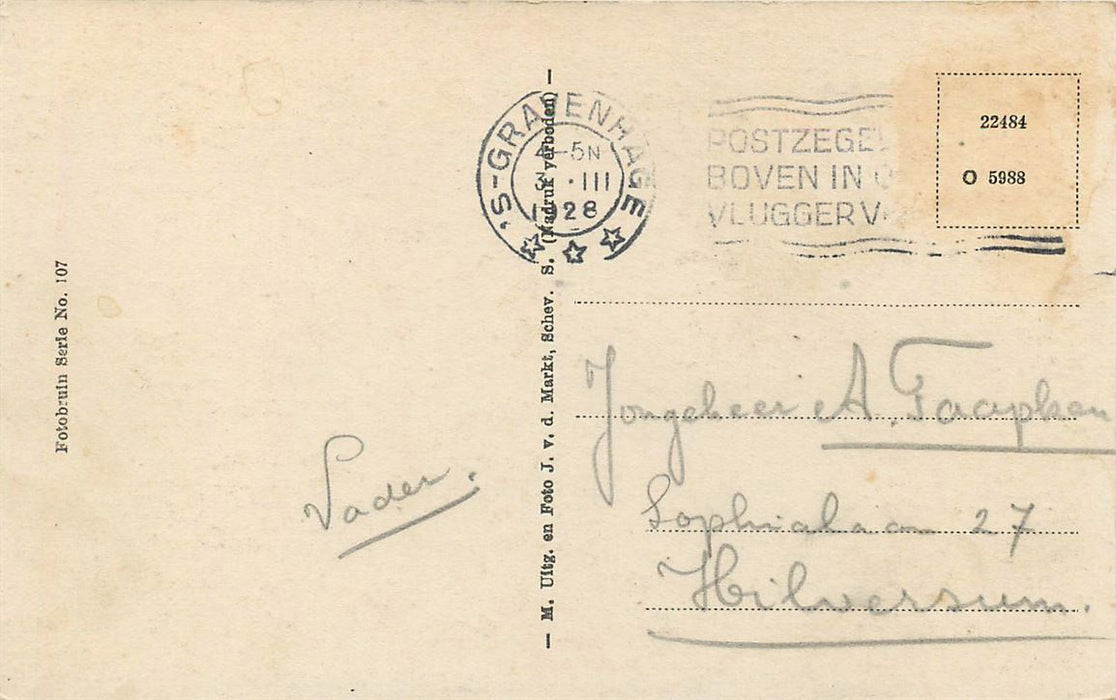 Fotobruin Serie No. 107
Vader.
— M. Uitg. en Foto J. v. d. Markt, Schev. S. (Nadruk verboden) —
'S-GRAVENHAGE
4-5N
3.III
1928
POSTZEGEL
BOVEN IN
VLUGGER V
22484
O 5988
Jongeheer A. Faapken
Sophialaan 27
Hilversum.